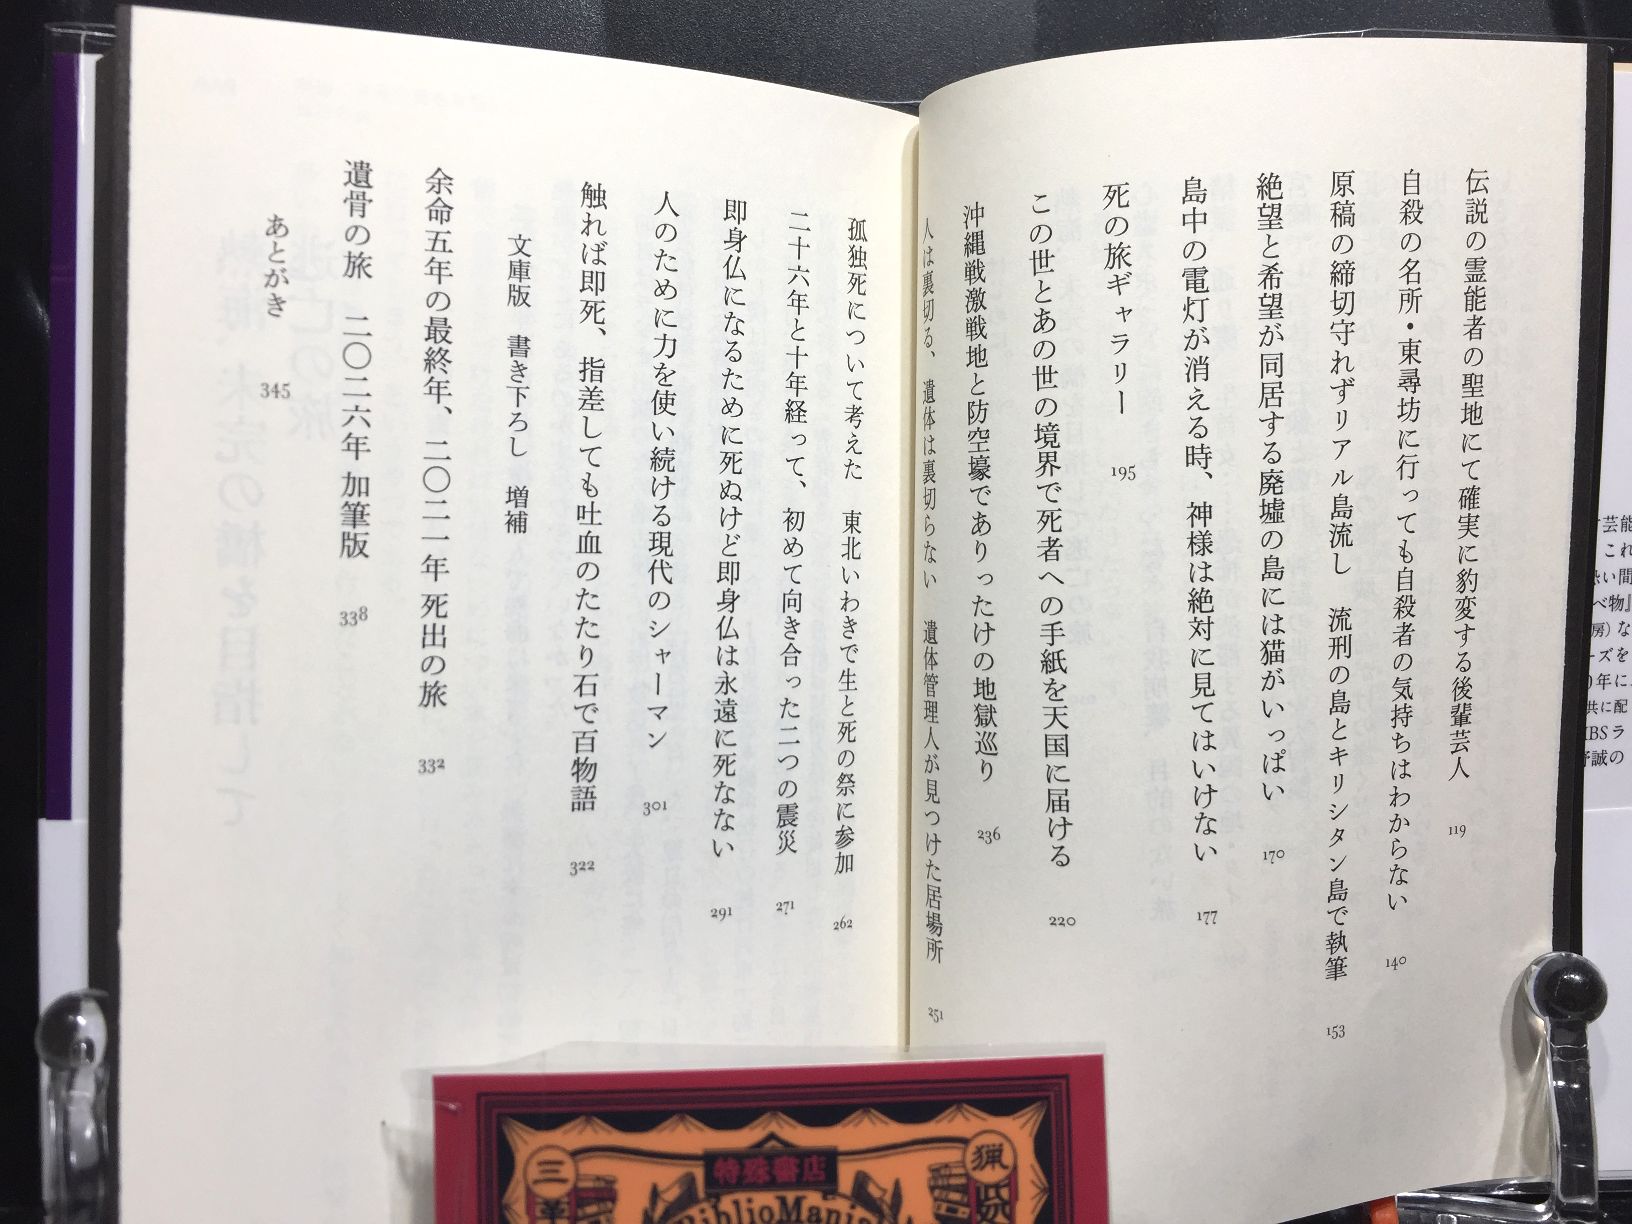 伝説の霊能者の聖地にて確実に豹変する後輩芸人 119
自殺の名所・東尋坊に行っても自殺者の気持ちはわからない 140
原稿の締切守れずリアル島流し 流刑の島とキリシタン島で執筆 153
絶望と希望が同居する廃墟の島には猫がいっぱい 170
島中の電灯が消える時、神様は絶対に見てはいけない 177
死の旅ギャラリー 195
この世とあの世の境界で死者への手紙を天国に届ける 220
沖縄戦激戦地と防空壕でありったけの地獄巡り 236
人は裏切る、遺体は裏切らない 遺体管理人が見つけた居場所 251
孤独死について考えた 東北いわきで生と死の祭に参加 262
二十六年と十年経って、初めて向き合った二つの震災 271
即身仏になるために死ぬけど即身仏は永遠に死なない 291
人のために力を使い続ける現代のシャーマン 301
触れば即死、指差しても吐血のたたり石で百物語 322
文庫版 書き下ろし 増補
余命五年の最終年、二〇二一年 死出の旅 332
遺骨の旅 二〇二六年 加筆版 338
あとがき 345
芸能
これ
い間
べ物』
房)な
ーズを
0年に、
共に配
BSラ
誠の
特殊書店
BiblioMania
三
猟